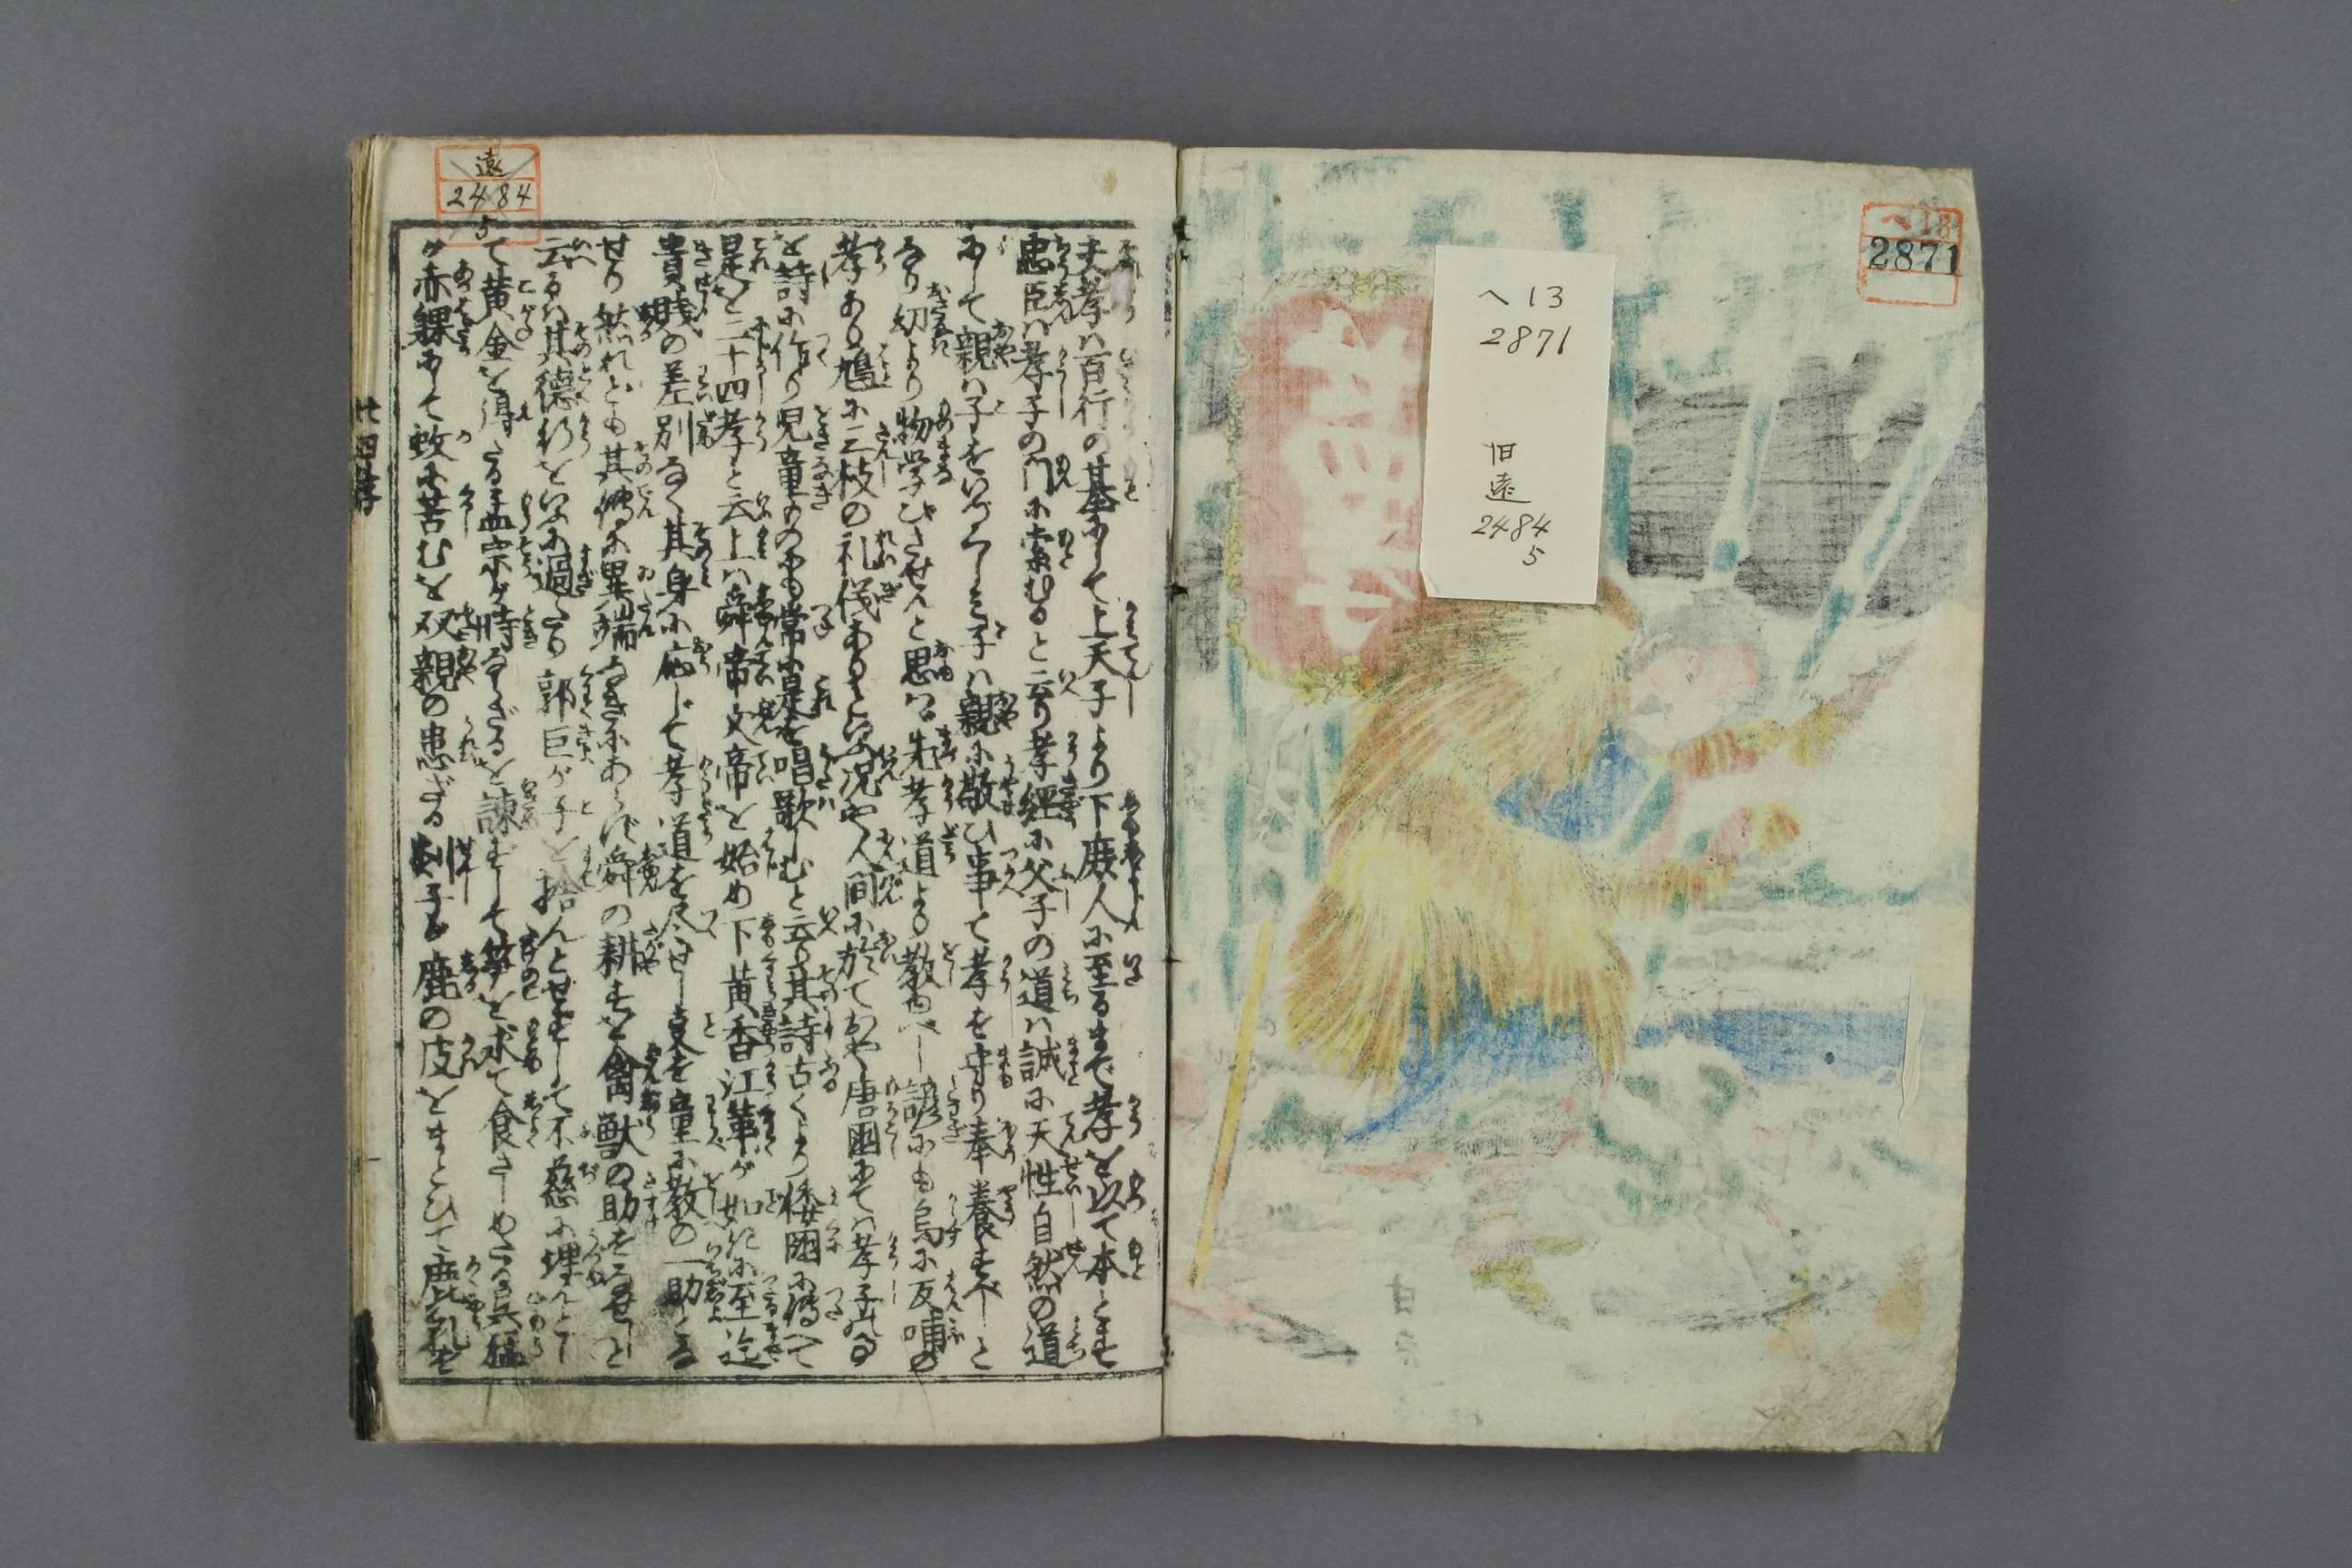 ヘ13
2871
ヘ13
2871
旧
遠
2484
5
夫孝ハ百行の基にして上天子より下庶人に至るまで孝を以て本とす
忠臣ハ孝子の門に索むると云り孝経に父子の道ハ誠に天性自然の道
にして親ハ子をいつくしミ子ハ親に敬ひ事て孝を守り奉養すべしと
なり幼より物学びさせんと思はゞ先孝道より教ゆべし諺にも烏に反哺の
孝あり鳩に三枝の礼儀ありといふ況や人間に於ておや唐国にてハ孝子の
を詩に作り児童のものにも常に是を唱歌しむと云り其詩古くより倭国に傳へて
是を二十四孝と云上ハ舜帝文帝を始め下黄香江革が如きに至迄
貴賎の差別なく其身に応じて孝道を尽せし事を童に教の一助とな
せり然れども其傳に異端なきにあらず舜の耕すを禽獣の助をなせしと
云るハ其徳行をいふに過たり郭巨が子を捨んとせずして不慈に埋んとし
て黄金を得たる孟宗が時ならざるを諌ずして笋を求て食さしめたる呉猛
が赤裸にして蚊に苦むを双親の患ざる剡子が鹿の皮をまとひて鹿乳を
廿四孝
遠
2484
5